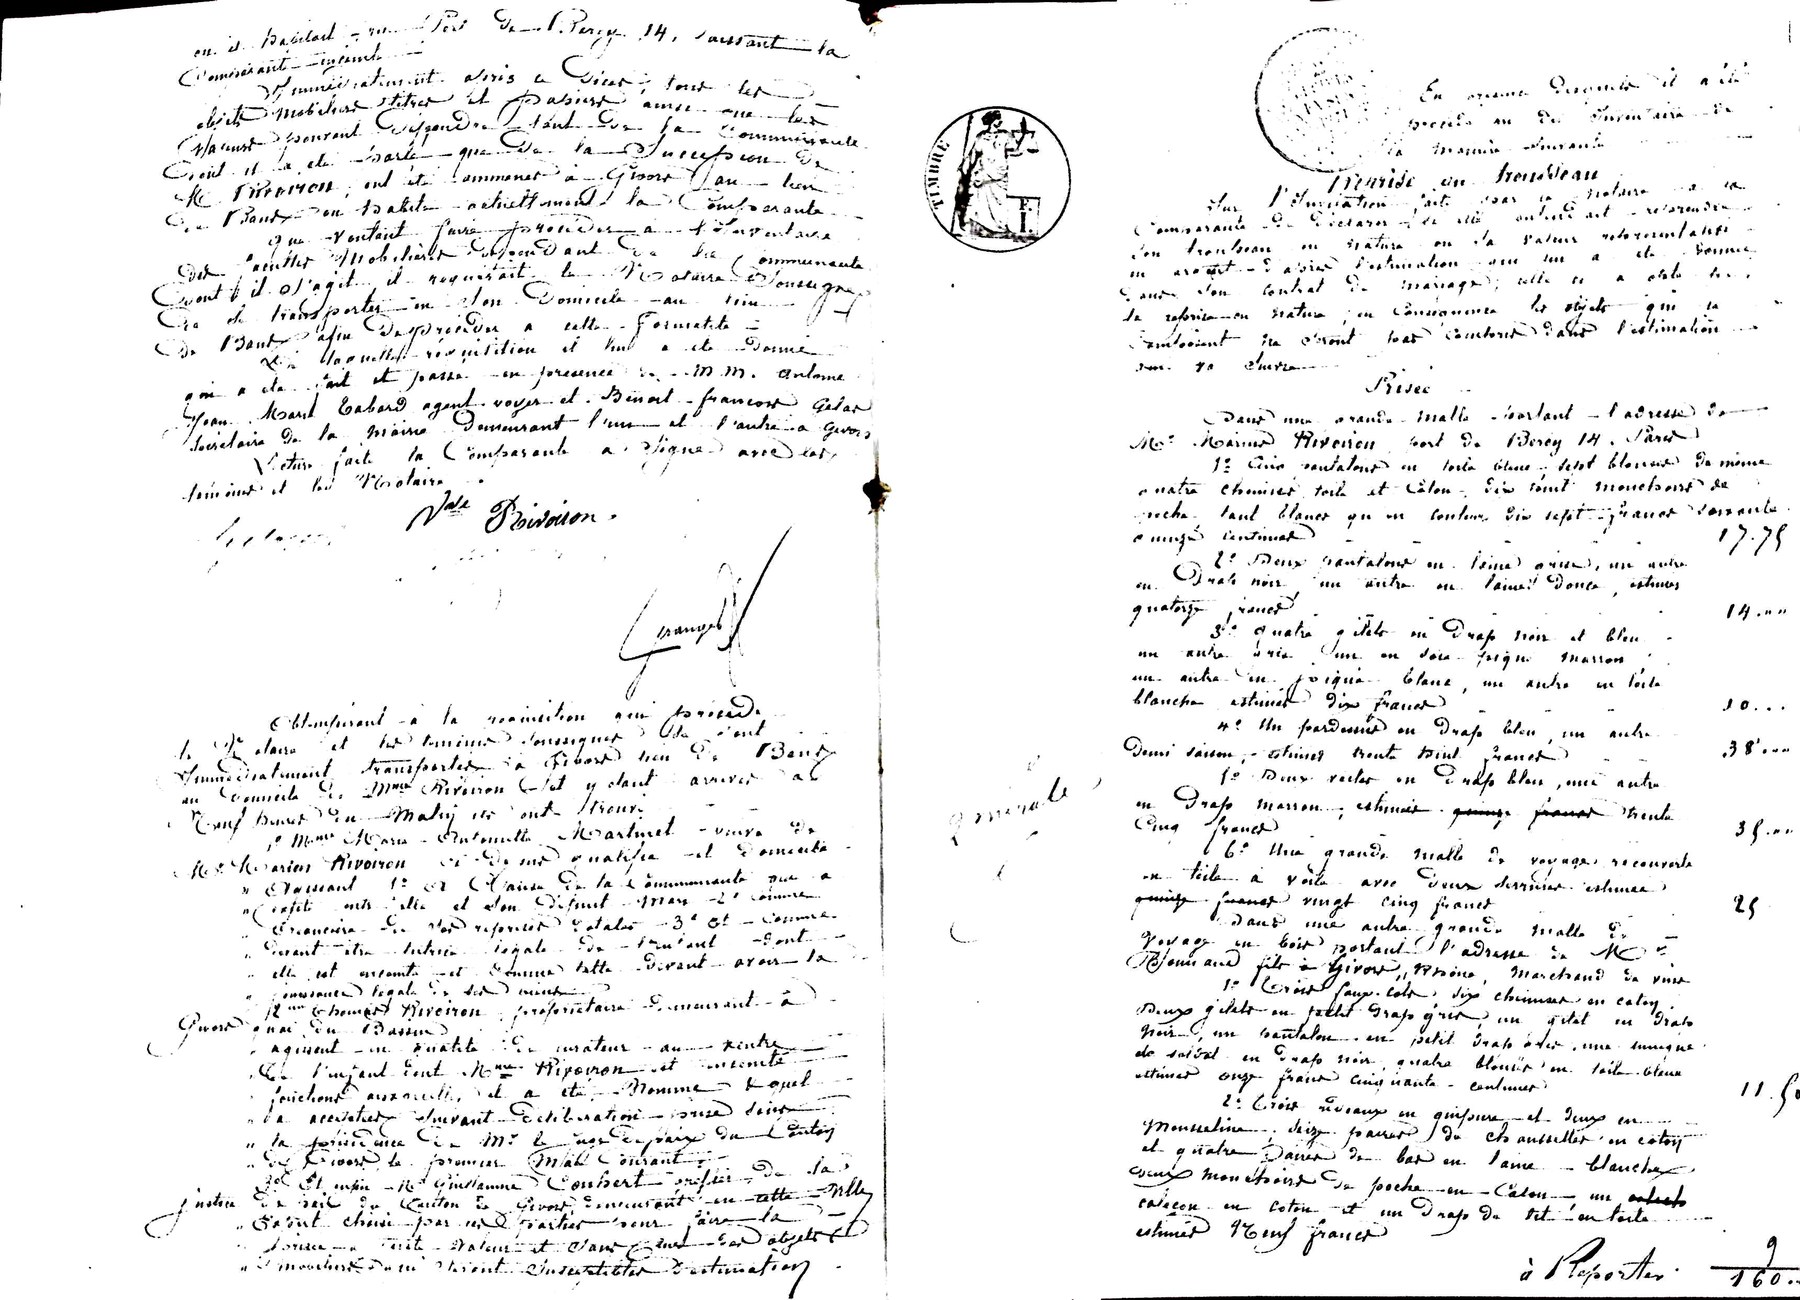 où il habitait rue Port de Bercy 14, laissant la
Comparante enceinte
Qu'immédiatement après ce décès, tous les
objets mobiliers titres et papiers ainsi que les
valeurs pouvant dépendre tant de la Communauté
dont il a été parlé que de la Succession de
M. Rivoiron, ont été amenés à Givors au lieu
de Bans où habite actuellement la Comparante
que voulant faire procéder à l'Inventaire
des facultés Mobilières dépendant de la Communauté
dont il s'agit, il requérait le Notaire soussigné
de se transporter en son Domicile au lieu
de Bans afin de procéder à cette formalité
De laquelle réquisition il lui a été donné
qui a été fait et passé en présence de M.M. Antoine
Jean Marie Tabard agent voyer et Benoit François Gelas
Secrétaire de la Mairie Demeurant l'un et l'autre à Givors
Lecture faite la Comparante a signé avec les
témoins et le Notaire
Vve Rivoiron.
Granges
Obtempérant à la réquisition qui précède
le Notaire et les témoins soussignés se sont
Immédiatement transportés à Givors lieu de Bans
au domicile de Mme Rivoiron et y étant arrivés à
Neuf heures du Matin ils ont trouvé
1° Mme Marie Antoinette Marturet veuve de
Mr Marius Rivoiron ci dessus qualifiée et domiciliée
" Agissant 1° à Cause de la Communauté qui a
" existé entre elle et son défunt Mari 2° Comme
" Créancière de ses reprises dotales 3° Et Comme
" devant être tutrice légale de l'enfant dont
" elle est enceinte et comme telle devant avoir la
" jouissance légale de ses biens
" 2° Mr Thomas Rivoiron propriétaire demeurant à
Givors quai du Bassin
" agissant en qualité de curateur au ventre
" de l'enfant dont Mme Rivoiron est enceinte
" fonctions auxquelles il a été Nommé & quel
" a acceptées suivant délibération prise sous
" la présidence de Mr le juge de paix du Canton
" de Givors le premier Mai Courant
3° Et enfin Mr Guillaume Combert greffier de la
justice de paix du Canton de Givors demeurant en cette Ville
" Expert choisi par les parties pour faire la
" prise à juste valeur et sans Crue des objets
" mobiliers qui seront susceptibles d'estimation
TIMBRE
En marge desquels il a été
procédé au dit Inventaire de
la manière suivante
Reprise en trousseau
Sur l'Invitation faite par le Notaire à la
Comparante de déclarer si elle entendait reprendre
son trousseau en nature ou la valeur représentative
en argent d'après l'estimation qui en a été donnée
dans son contrat de mariage, celle ci a opté pour
la reprise en nature, en Conséquence les objets qui le
Composent ne seront pas Compris dans l'estimation
qui va suivre
Prisée
Dans une grande malle portant l'adresse de
Mr Marius Rivoiron, port de Bercy 14. Paris
1° Cinq pantalons en toile bleue, sept blouses de même
quatre chemises toile et Coton, dix huit mouchoirs de
poche tant blancs qu'en couleur dix sept francs soixante
quinze centimes 17.75
2° Deux pantalons en laine grise, un autre
en Drap noir, un autre en laine douce, estimés
quatorze francs 14.""
3° quatre gilets en Drap noir et bleu
un autre gris, un en soie piqué marron
un autre en piqué blanc, un autre en toile
blanche estimés dix francs 10...
4° Un pardessus en Drap bleu, un autre
demi saison, estimés trente huit francs 38"""
5° Deux vestes en Drap bleu, une autre
en Drap marron, estimées quinze francs trente
Cinq francs 35.""
6° Une grande malle de voyage recouverte
en toile à voile avec deux serrures estimée
quinze francs vingt cinq francs 25
Dans une autre grande malle de
voyage en bois portant l'adresse de Mr
fils à Givors, Rhône, Marchand de vins
1° Trois faux-cols, six chemises en coton,
deux gilets en petit drap gris, un gilet en drap
noir, un pantalon en petit drap gris, une tunique
de soldat en drap noir, quatre blouses en toile bleue
estimés onze francs cinquante centimes 11.50
2° Trois rideaux en guipure et deux en
mousseline, seize paires de chaussettes en coton
et quatre paires de bas en laine blanche
deux mouchoirs de poche en Coton un
caleçon en coton et un Drap de lit en toile
estimés Neuf francs 9
à Reporter 160..